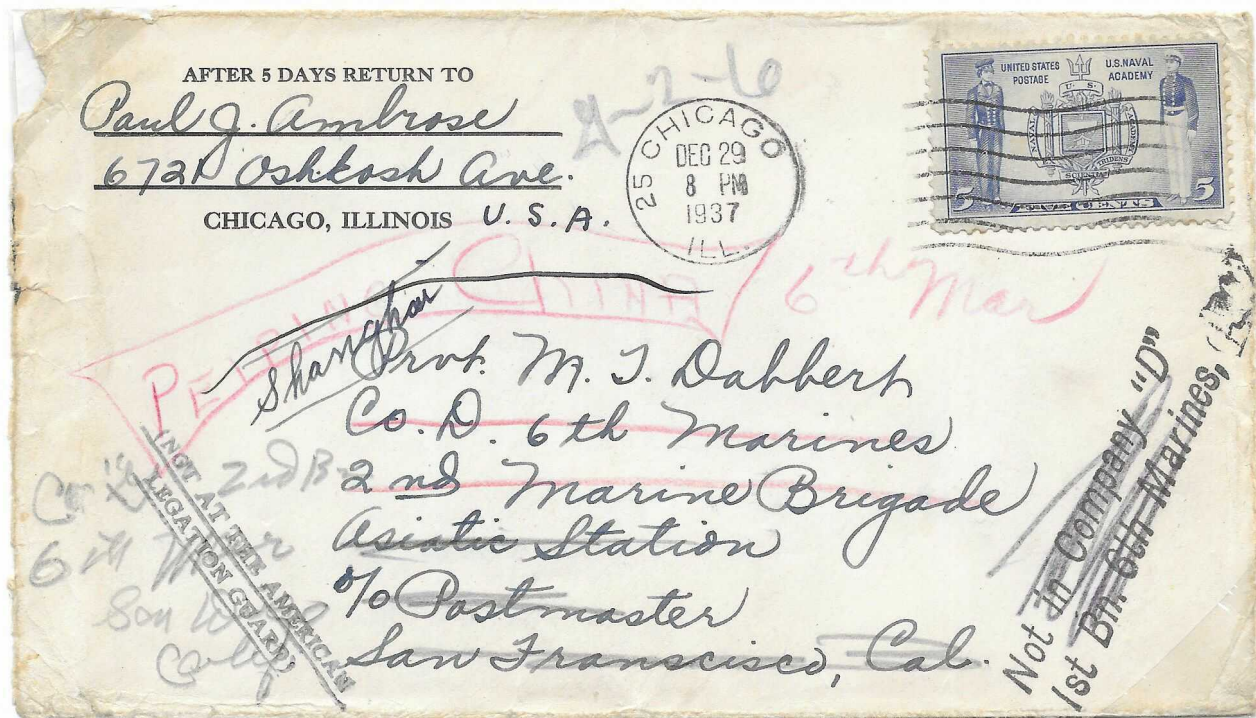 AFTER 5 DAYS RETURN TO
Paul J. Ambrose
6721 Oshkosh Ave.
CHICAGO, ILLINOIS U.S.A.
G-2-6
25 CHICAGO ILL.
DEC 29
8 PM
1937
UNITED STATES POSTAGE
U.S. NAVAL ACADEMY
5 FIVE CENTS 5
PEIPING CHINA
6th Mar
Shanghai
Prvt. M. J. Dabbert
Co. D. 6th Marines
2nd Marine Brigade
Asiatic Station
c/o Postmaster
San Franscisco, Cal.
(NOT AT THE AMERICAN
LEGATION GUARD)
2nd B
6th Mar
San
Calif
Not in Company "D"
1st Bn. 6th Marines,